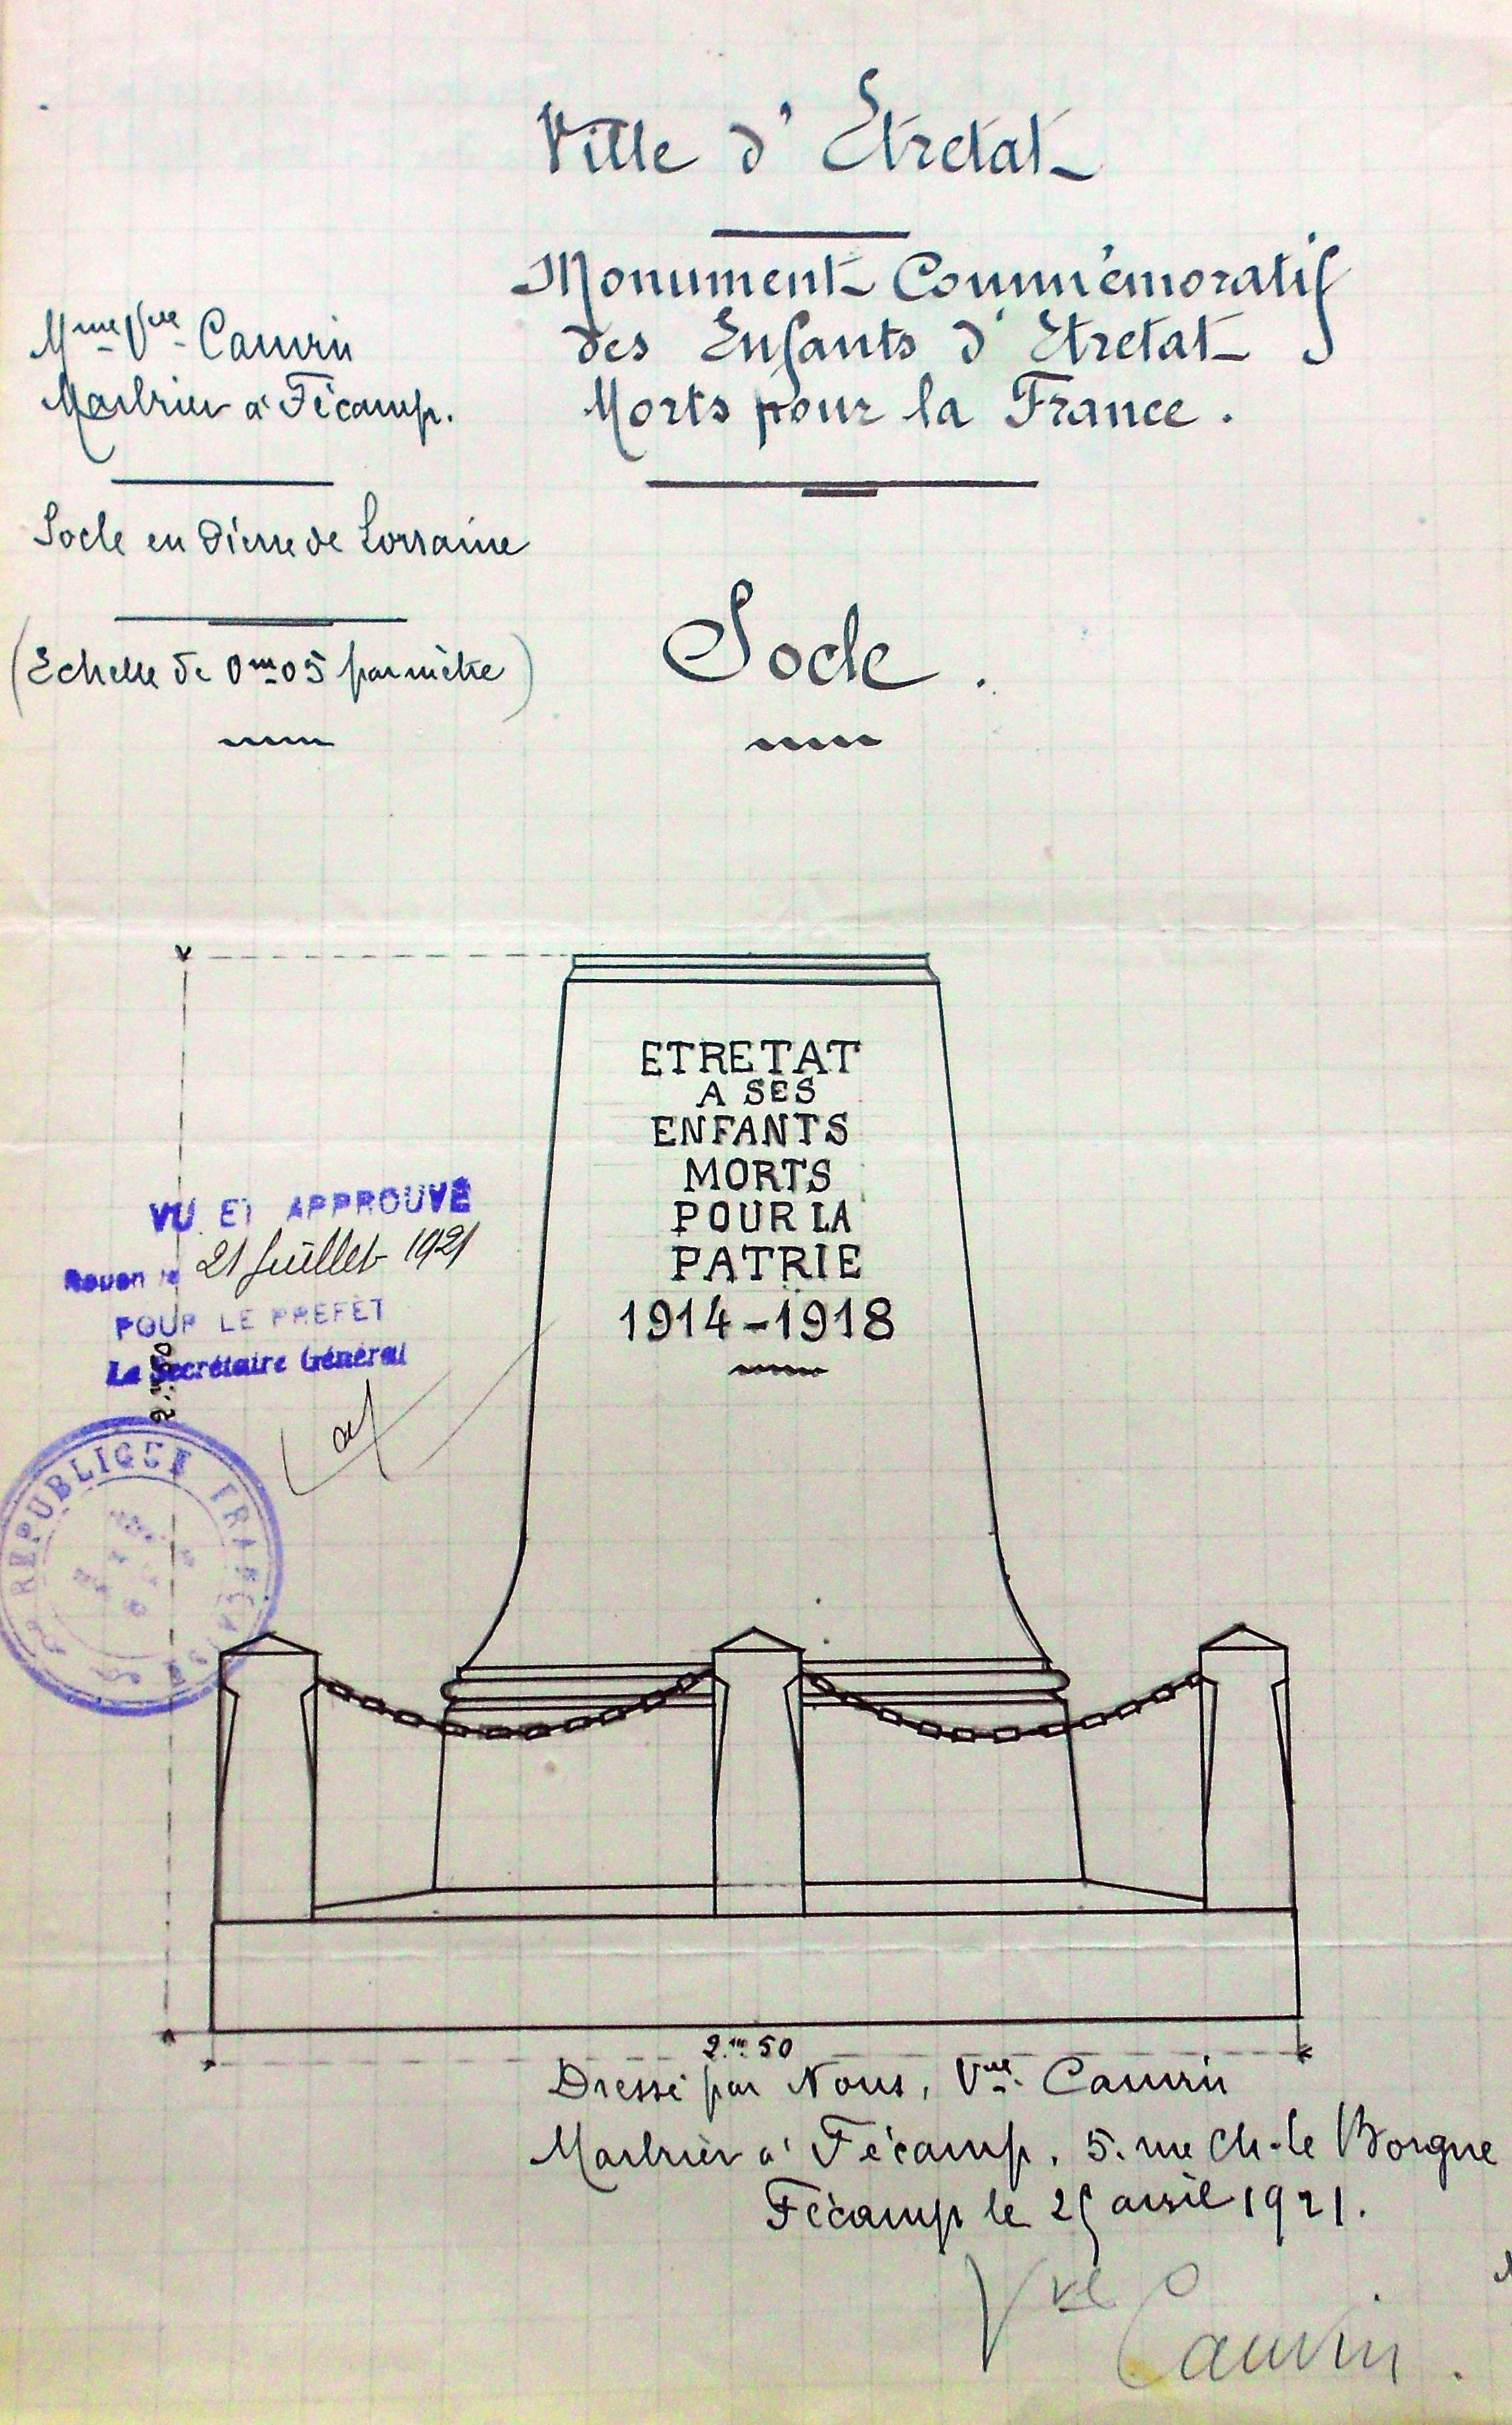 Ville d'Etretat
Monument Commémoratif
des Enfants d'Etretat
Morts pour la France.
Mme Vve Cauvin
Marbrier à Fécamp.
Socle en Pierre de Lorraine
(Echelle de 0m05 par mètre)
Socle.
ETRETAT
A SES
ENFANTS
MORTS
POUR LA
PATRIE
1914-1918
VU ET APPROUVÉ
Rouen le 21 Juillet 1921
POUR LE PREFET
Le Secrétaire Général
REPUBLIQUE FRANÇAISE
2m50
Dressé par Nous, Vve Cauvin
Marbrier à Fécamp. 5. rue Ch. le Borgne
Fécamp le 25 avril 1921.
Vve Cauvin.